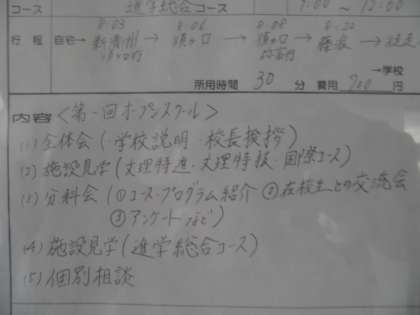 コース 進学総合コース 9:00 ~ 12:00
8:03 8:06 8:08 8:22
行程 自宅→ 新清洲 → 須ヶ口 → 須ヶ口 → → 徒走
→学校
所用時間 30 分 費用 700 円
内容<第一回オープンスクール>
(1) 全体会(・学校説明・校長挨拶)
(2) 施設見学(文理特進・文理特技・国際コース)
(3) 分科会(①コース・プログラム紹介 ②在校生との交流会
③アンケートなど)
(4) 施設見学(進学総合コース)
(5) 個別相談